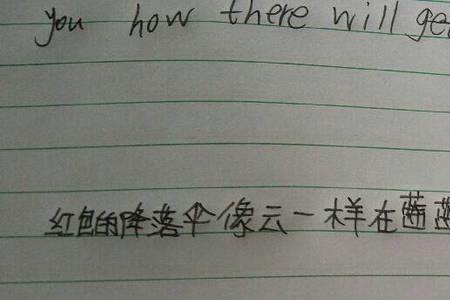 you how there will ge
红色的降落伞像云一样在